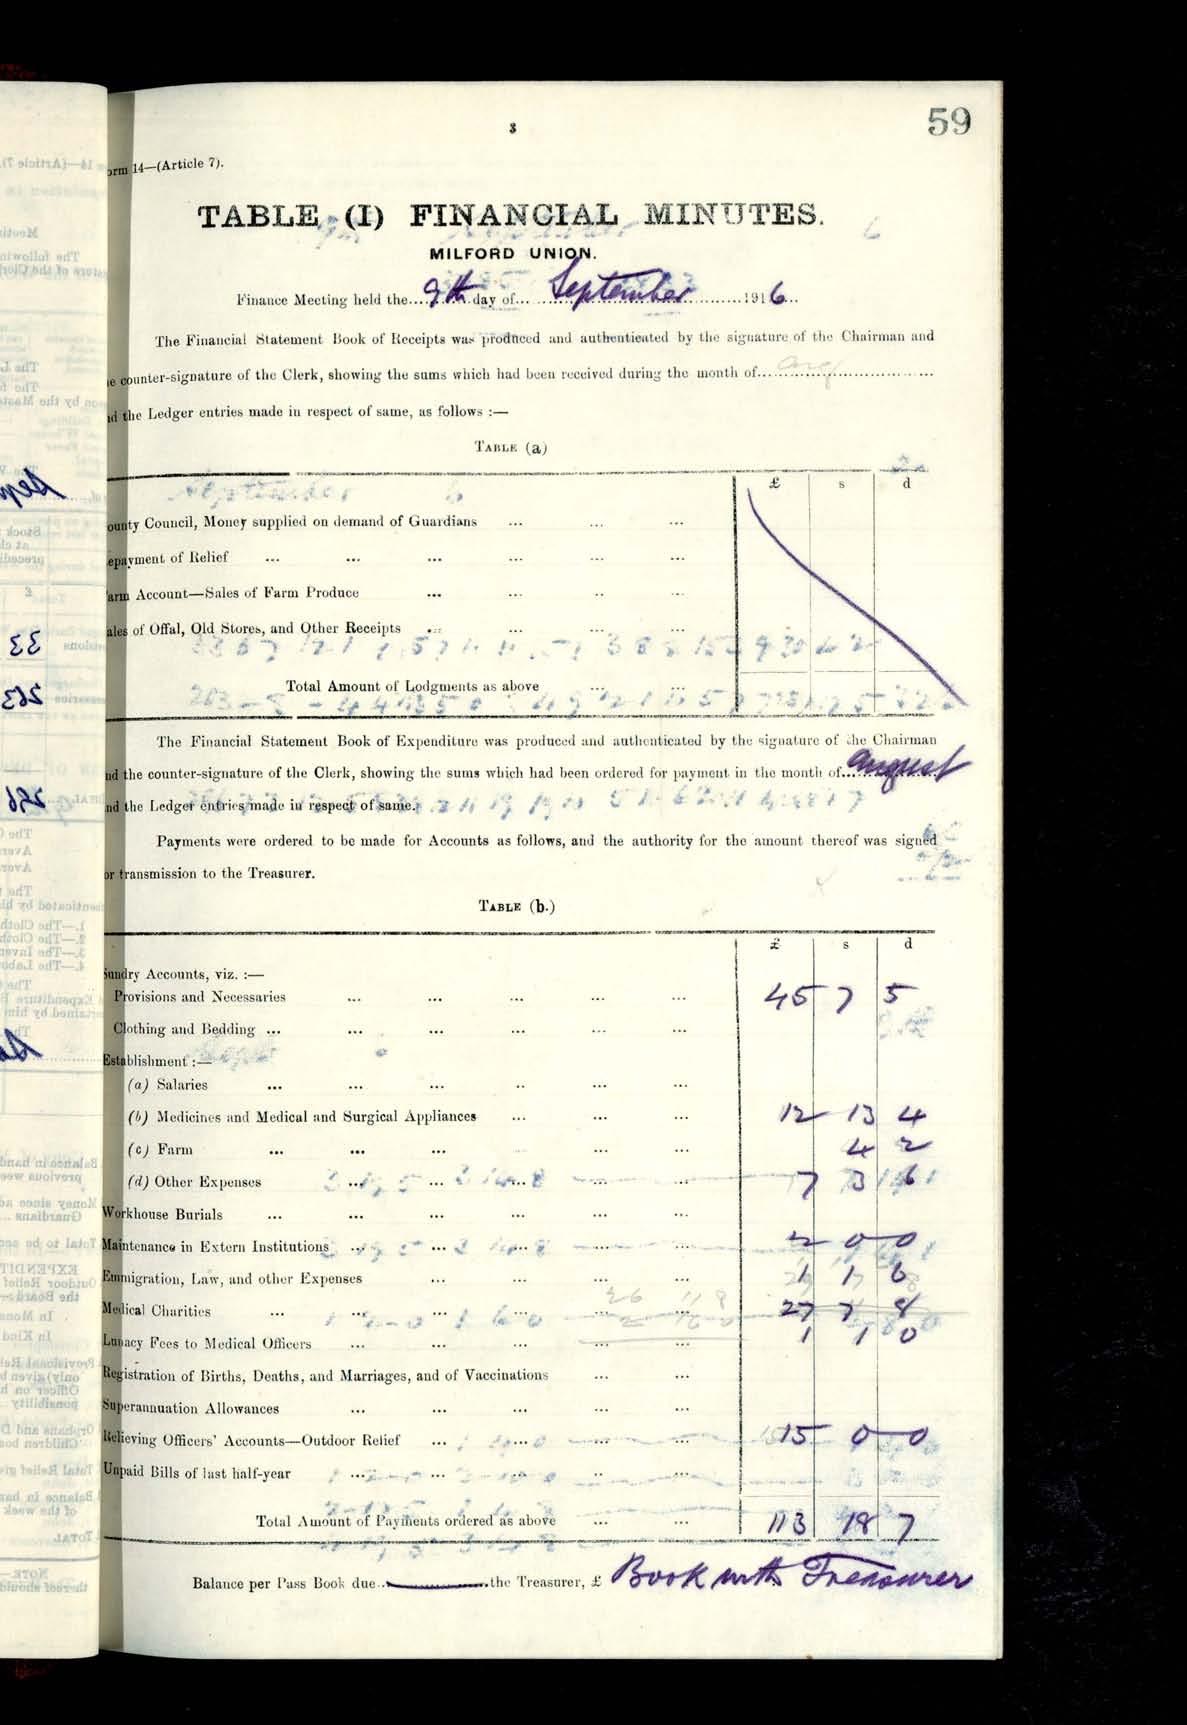 59
3
orm 14—(Article 7).
TABLE (I) FINANCIAL MINUTES.
MILFORD UNION.
Finance Meeting held the....9th day of... September ...........1916...
The Financial Statement Book of Receipts was produced and authenticated by the signature of the Chairman and
e counter-signature of the Clerk, showing the sums which had been received during the month of... Aug ...
nd the Ledger entries made in respect of same, as follows :—
TABLE (a)
£ s d
ounty Council, Money supplied on demand of Guardians ... ... ...
epayment of Relief ... ... ... ... ... ...
arm Account—Sales of Farm Produce ... ... .. ...
ales of Offal, Old Stores, and Other Receipts ... ... ... ...
Total Amount of Lodgments as above ... ...
The Financial Statement Book of Expenditure was produced and authenticated by the signature of the Chairman
nd the counter-signature of the Clerk, showing the sums which had been ordered for payment in the month of... August
nd the Ledger entries made in respect of same.
Payments were ordered to be made for Accounts as follows, and the authority for the amount thereof was signed
or transmission to the Treasurer.
TABLE (b.)
£ s d
Sundry Accounts, viz. :—
Provisions and Necessaries ... ... ... ... ... 45 7 5
Clothing and Bedding ... ... ... ... ... ...
Establishment :—
(a) Salaries ... ... ... .. ... ...
(b) Medicines and Medical and Surgical Appliances ... ... ... 12 13 4
(c) Farm ... ... ... ... ... 4 2
(d) Other Expenses ... ... ... ... ... 7 3 6
Workhouse Burials ... ... ... ... ... ...
Maintenance in Extern Institutions ... ... ... ... ... 2 0 0
Emmigration, Law, and other Expenses ... ... ... ... 1 1 6
Medical Charities ... ... ... ... ... ... 27 7 8
Lunacy Fees to Medical Officers ... ... ... ... ... 1 1 0
Registration of Births, Deaths, and Marriages, and of Vaccinations ... ...
Superannuation Allowances ... ... ... ... ...
Relieving Officers' Accounts—Outdoor Relief ... ... ... ... 15 0 0
Unpaid Bills of last half-year ... ... ... .. ...
Total Amount of Payments ordered as above ... ... 113 18 7
Balance per Pass Book due .. ..the Treasurer, £ Book with Treasurer